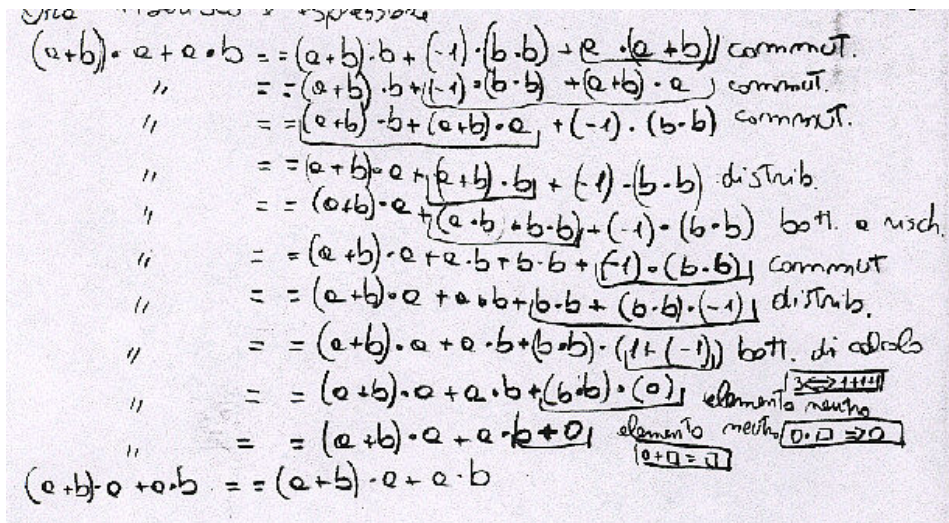 espressione
(a+b)·a+a·b = =(a+b)·b+(-1)·(b·b)+a·(a+b) commut.
" = =(a+b)·b+(-1)·(b·b)+(a+b)·a commut.
" = =(a+b)·b+(a+b)·a+(-1)·(b·b) commut.
" = =(a+b)·a+(a+b)·b+(-1)·(b·b) distrib.
" = =(a+b)·a+(a·b+b·b)+(-1)·(b·b) bott. a risch.
" = =(a+b)·a+a·b+b·b+(-1)·(b·b) commut
" = =(a+b)·a+a·b+b·b+(b·b)·(-1) distrib.
" = =(a+b)·a+a·b+(b·b)·(1+(-1)) bott. di calcolo
" = =(a+b)·a+a·b+(b·b)·(0) elemento neutro 3<=>1+1+1
" = =(a+b)·a+a·b+0 elemento neutro 0·□=>0
0+□=□
(a+b)·a+a·b = =(a+b)·a+a·b